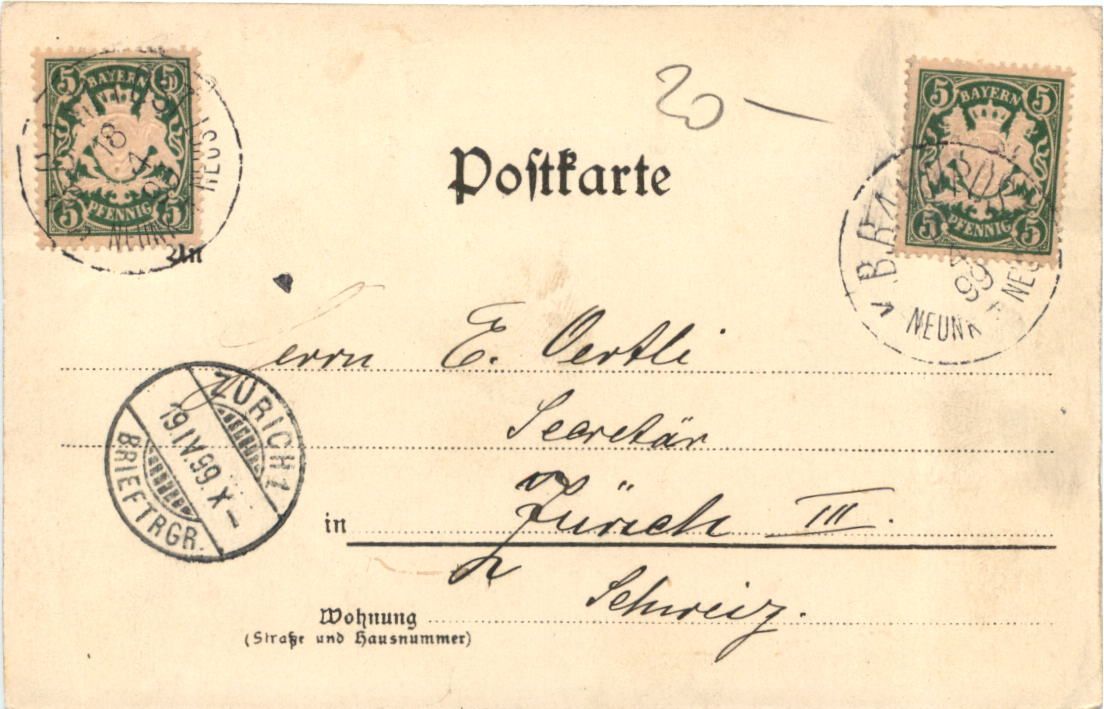 5 BAYERN 5
5 PFENNIG 5
18
4
NEUNK
NEUST
20 —
5 BAYERN 5
5 PFENNIG 5
99
NEUNK
Postkarte
An
Herrn E. Oertli
Secretär
in Zürich III.
Schweiz.
ZÜRICH 1
19.IV.99.X-
BRIEFTRGR.
Wohnung
(Straße und Hausnummer)